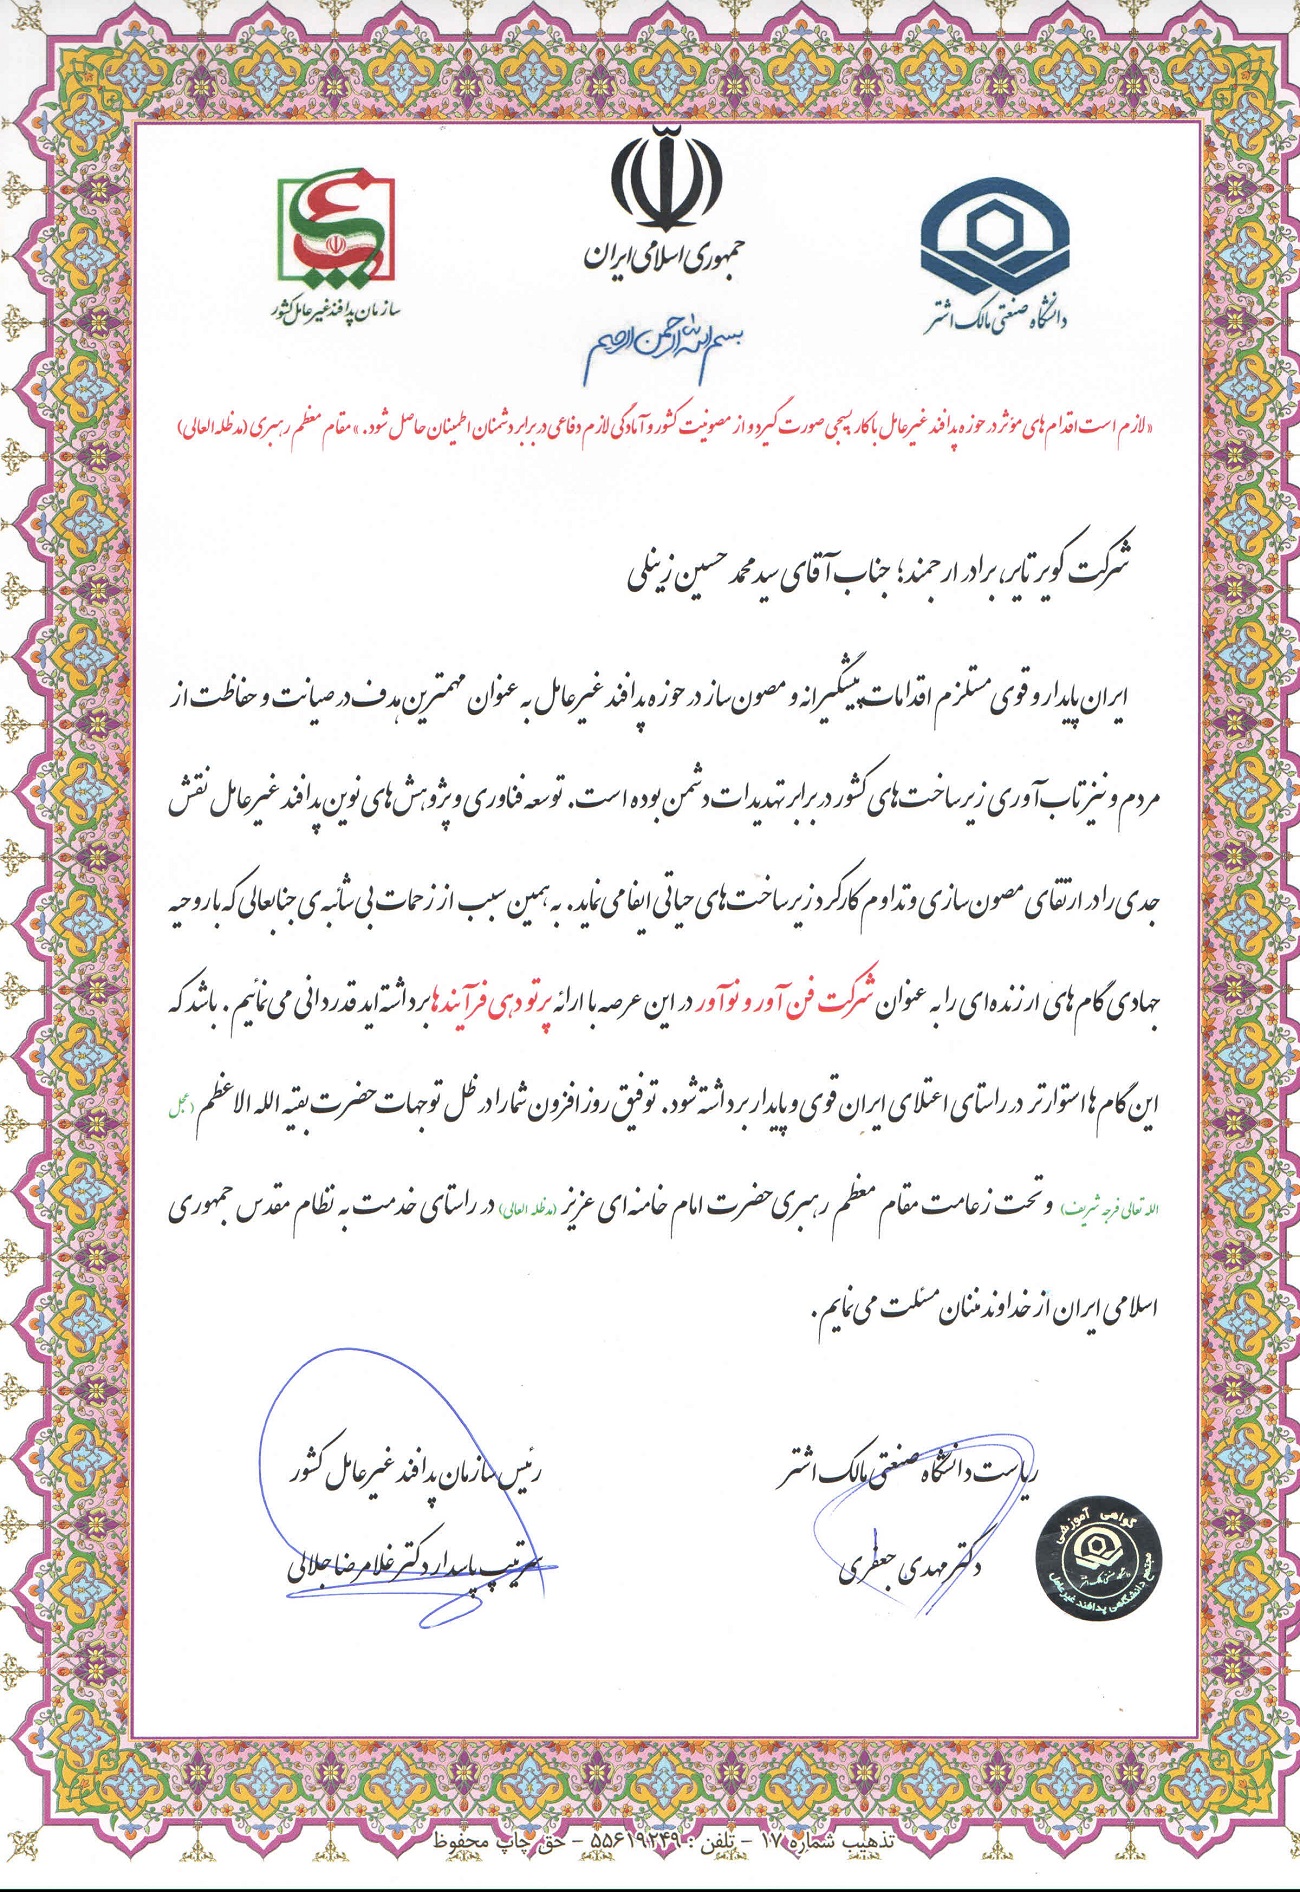 دانشگاه صنعتی مالک اشتر
جمهوری اسلامی ایران
سازمان پدافند غیرعامل کشور
بسم الله الرحمن الرحیم
«لازم است اقدام‌های مؤثر در حوزه پدافند غیرعامل با کار بسیجی صورت گیرد و از مصونیت کشور و آمادگی لازم دفاعی در برابر دشمنان اطمینان حاصل شود.» مقام معظم رهبری (مدظله العالی)
شرکت کویر تایر، برادر ارجمند؛ جناب آقای سید محمد حسین زینلی
ایران پایدار و قوی مستلزم اقدامات پیشگیرانه و مصون ساز در حوزه پدافند غیرعامل به عنوان مهمترین هدف در صیانت و حفاظت از
مردم و نیز تاب‌آوری زیرساخت‌های کشور در برابر تهدیدات دشمن بوده است. توسعه فناوری و پژوهش‌های نوین پدافند غیرعامل نقش
جدی را در ارتقای مصون سازی و تداوم کارکرد زیرساخت‌های حیاتی ایفا می نماید. به همین سبب از زحمات بی شائبه‌ی جنابعالی که با روحیه
جهادی گام های ارزنده‌ای را به عنوان شرکت فن آور و نوآور در این عرصه با ارائه پرتو دهی فرآیندها برداشته اید قدردانی می نمائیم. باشد که
این گام ها استوارتر در راستای اعتلای ایران قوی و پایدار برداشته شود. توفیق روزافزون شما را در ظل توجهات حضرت بقیه الله الاعظم (عجل
الله تعالی فرجه شریف) و تحت زعامت مقام معظم رهبری حضرت امام خامنه‌ای عزیز (مدظله العالی) در راستای خدمت به نظام مقدس جمهوری
اسلامی ایران از خداوند منان مسئلت می نمایم.
ریاست دانشگاه صنعتی مالک اشتر
رئیس سازمان پدافند غیرعامل کشور
دکتر مهدی جعفری
سرتیپ پاسدار دکتر غلامرضا جلالی
گواهی آموزشی
دانشگاه صنعتی مالک اشتر
مجتمع دانشگاهی پدافند غیرعامل
تذهیب شماره ۱۷ - تلفن : ۵۵۶۱۹۲۴۹ - حق چاپ محفوظ